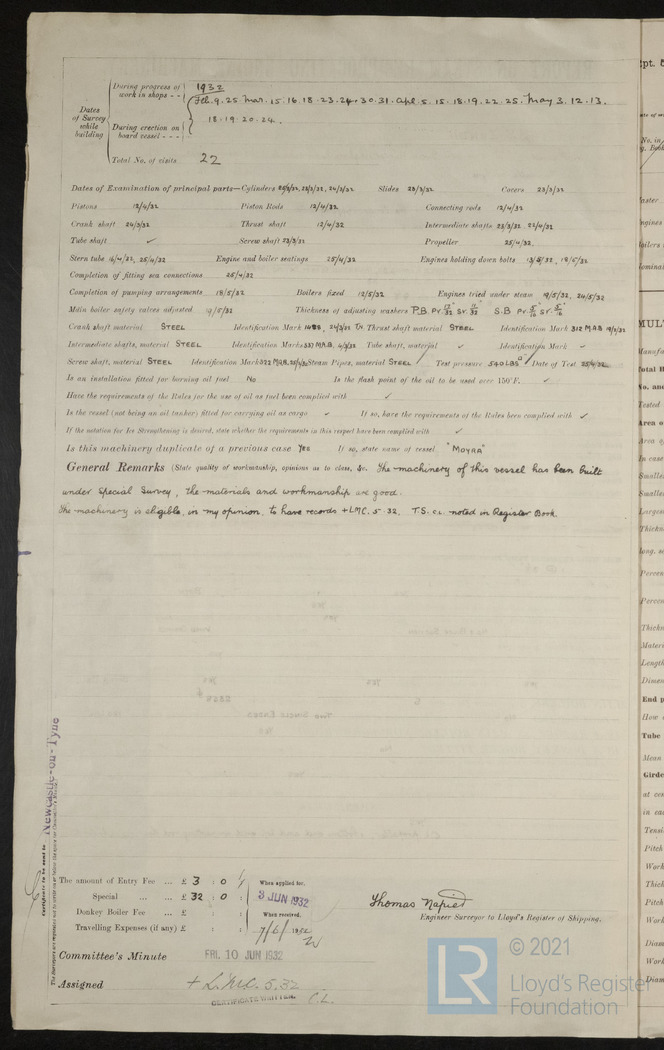 Dates of Survey while building
During progress of work in shops - - 1932 Feb. 9. 25. Mar. 15. 16. 18. 23. 24. 30. 31. Apl. 5. 15. 18. 19. 22. 25. May 3. 12. 13.
During erection on board vessel - - - 18. 19. 20. 24.
Total No. of visits 22
Dates of Examination of principal parts—Cylinders 23/3/32, 24/3/32 Slides 23/3/32 Covers 23/3/32
Pistons 12/4/32 Piston Rods 12/4/32 Connecting rods 12/4/32
Crank shaft 24/3/32 Thrust shaft 12/4/32 Intermediate shafts 23/3/32 22/4/32
Tube shaft ✓ Screw shaft 23/3/32 Propeller 25/4/32.
Stern tube 16/4/32, 25/4/32 Engine and boiler seatings 25/4/32 Engines holding down bolts 13/5/32, 18/5/32
Completion of fitting sea connections 25/4/32
Completion of pumping arrangements 18/5/32 Boilers fixed 12/5/32 Engines tried under steam 19/5/32, 24/5/32
Main boiler safety valves adjusted 19/5/32 Thickness of adjusting washers P.B. PV. 12/32 SV. 11/32 S.B PV. 5/16 SV. 5/16
Crank shaft material STEEL Identification Mark 24/3/32 Thrust shaft material STEEL Identification Mark 312 M.A.B
Intermediate shafts, material STEEL Identification Marks 337 M.A.B. Tube shaft, material ✓ Identification Mark ✓
Screw shaft, material STEEL Identification Mark 322 M.A.B. Steam Pipes, material STEEL Test pressure 540 LBS Date of Test 25/4/32
Is an installation fitted for burning oil fuel No Is the flash point of the oil to be used over 150°F. ✓
Have the requirements of the Rules for the use of oil as fuel been complied with ✓
Is the vessel (not being an oil tanker) fitted for carrying oil as cargo ✓ If so, have the requirements of the Rules been complied with ✓
If the notation for Ice Strengthening is desired, state whether the requirements in this respect have been complied with ✓
Is this machinery duplicate of a previous case Yes If so, state name of vessel "MOYRA"
General Remarks (State quality of workmanship, opinions as to class, &c. The machinery of this vessel has been built
under Special Survey, the materials and workmanship are good.
The machinery is eligible, in my opinion, to have records +LMC. 5.32, T.S. CL. noted in Register Book.
Newcastle-on-Tyne
The amount of Entry Fee ... £ 3 : 0 :
Special ... ... £ 32 : 0 :
Donkey Boiler Fee ... £ : :
Travelling Expenses (if any) £ : :
When applied for,
3 JUN 1932
When received,
7/6/1932
Thomas Napier
Engineer Surveyor to Lloyd's Register of Shipping.
Committee's Minute FRI. 10 JUN 1932
Assigned + L.M.C. 5.32
CERTIFICATE WRITTEN. C.L.
LR
© 2021
Lloyd's Register
Foundation